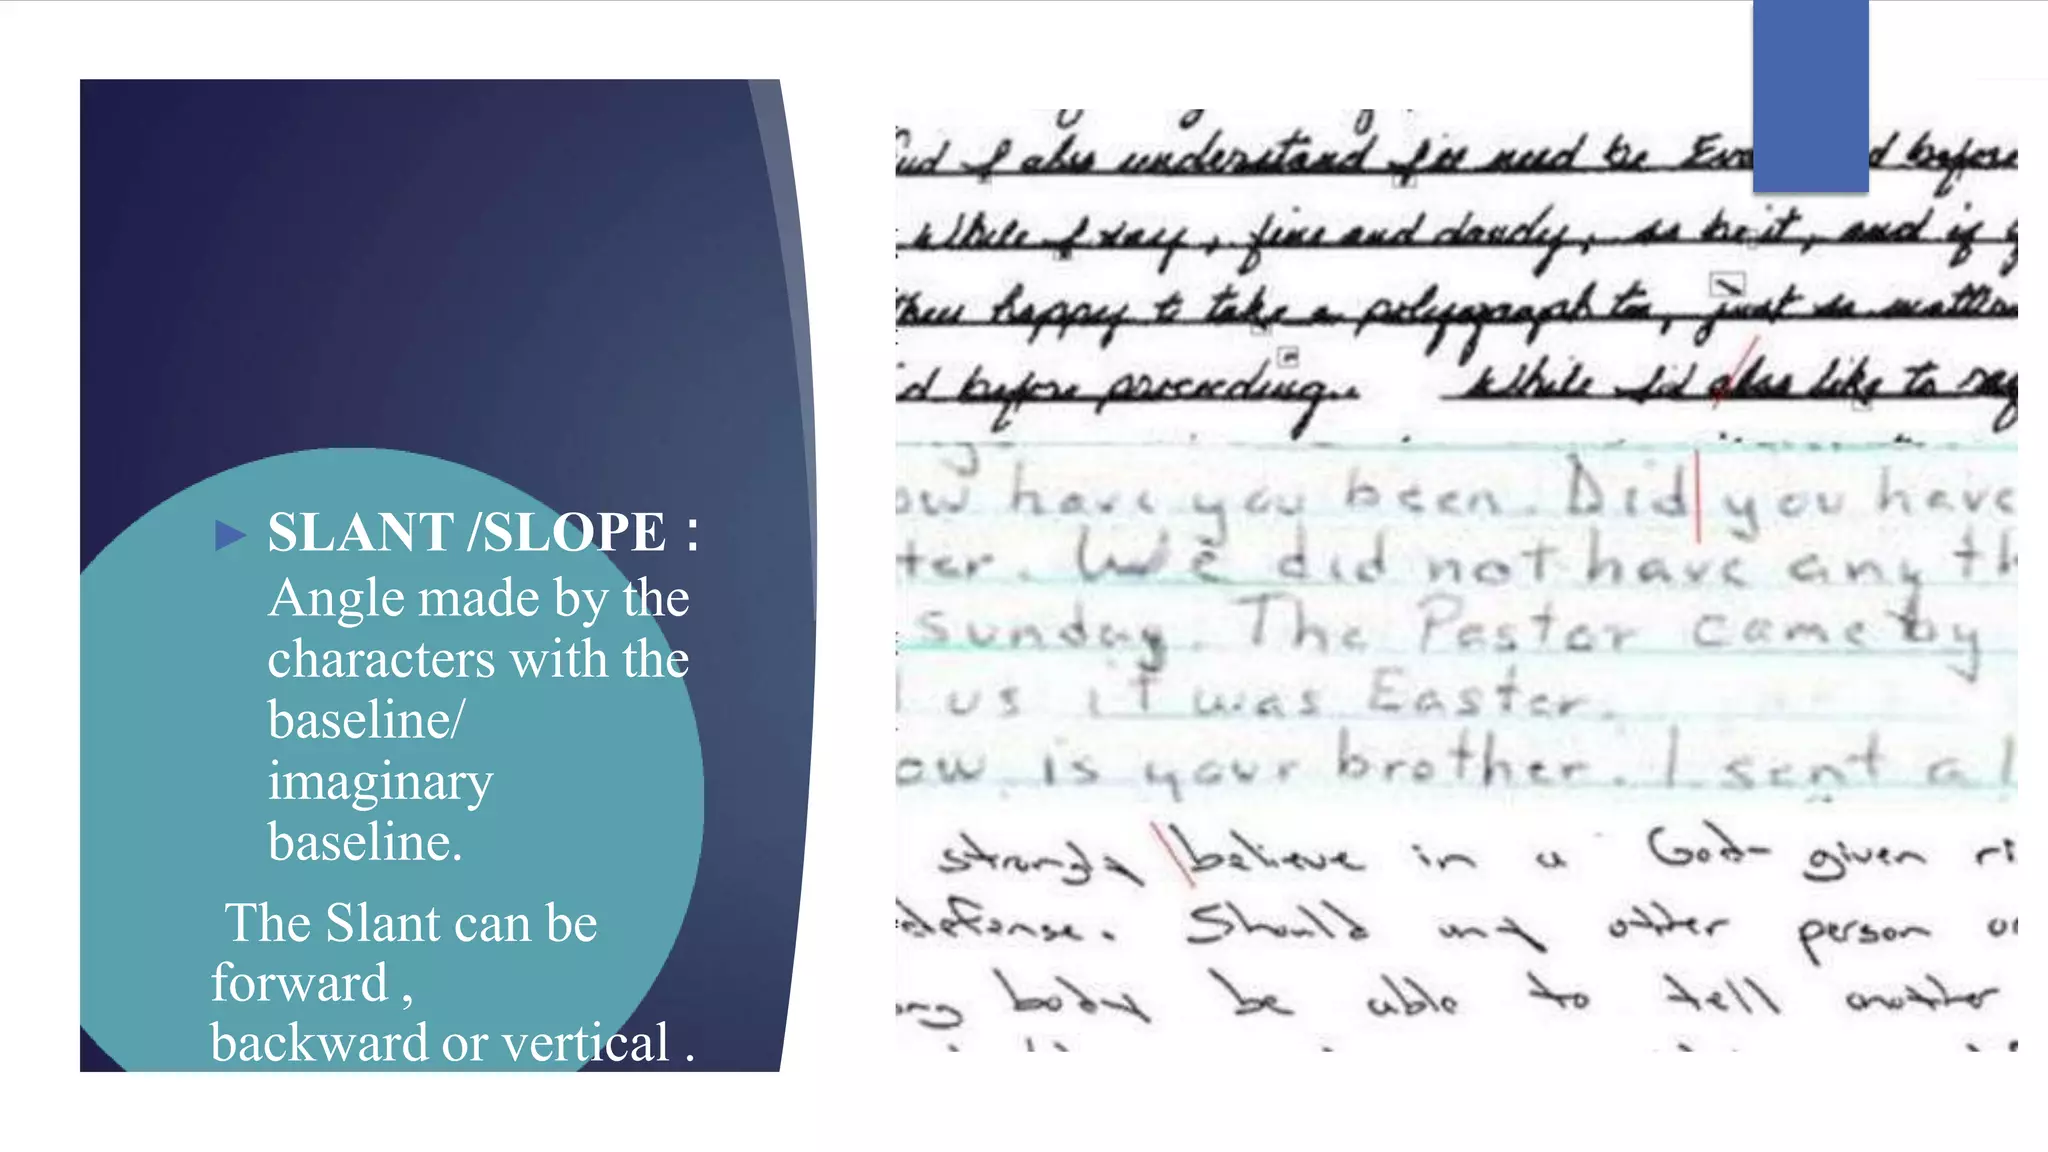 SLANT /SLOPE :
Angle made by the
characters with the
baseline/
imaginary
baseline.
The Slant can be
forward ,
backward or vertical .
I also understand I'll need be before
While I say, fine and dandy, so be it, and if
happy to take a polygraph too, just so
before proceeding.. While I'd also like to say
have you been. Did you have
ter. We did not have any th
sunday. The Pastor came by
us it was Easter.
ow is your brother. I sent a l
strongly believe in a God-given ri
defense. Should any other person or
body be able to tell another